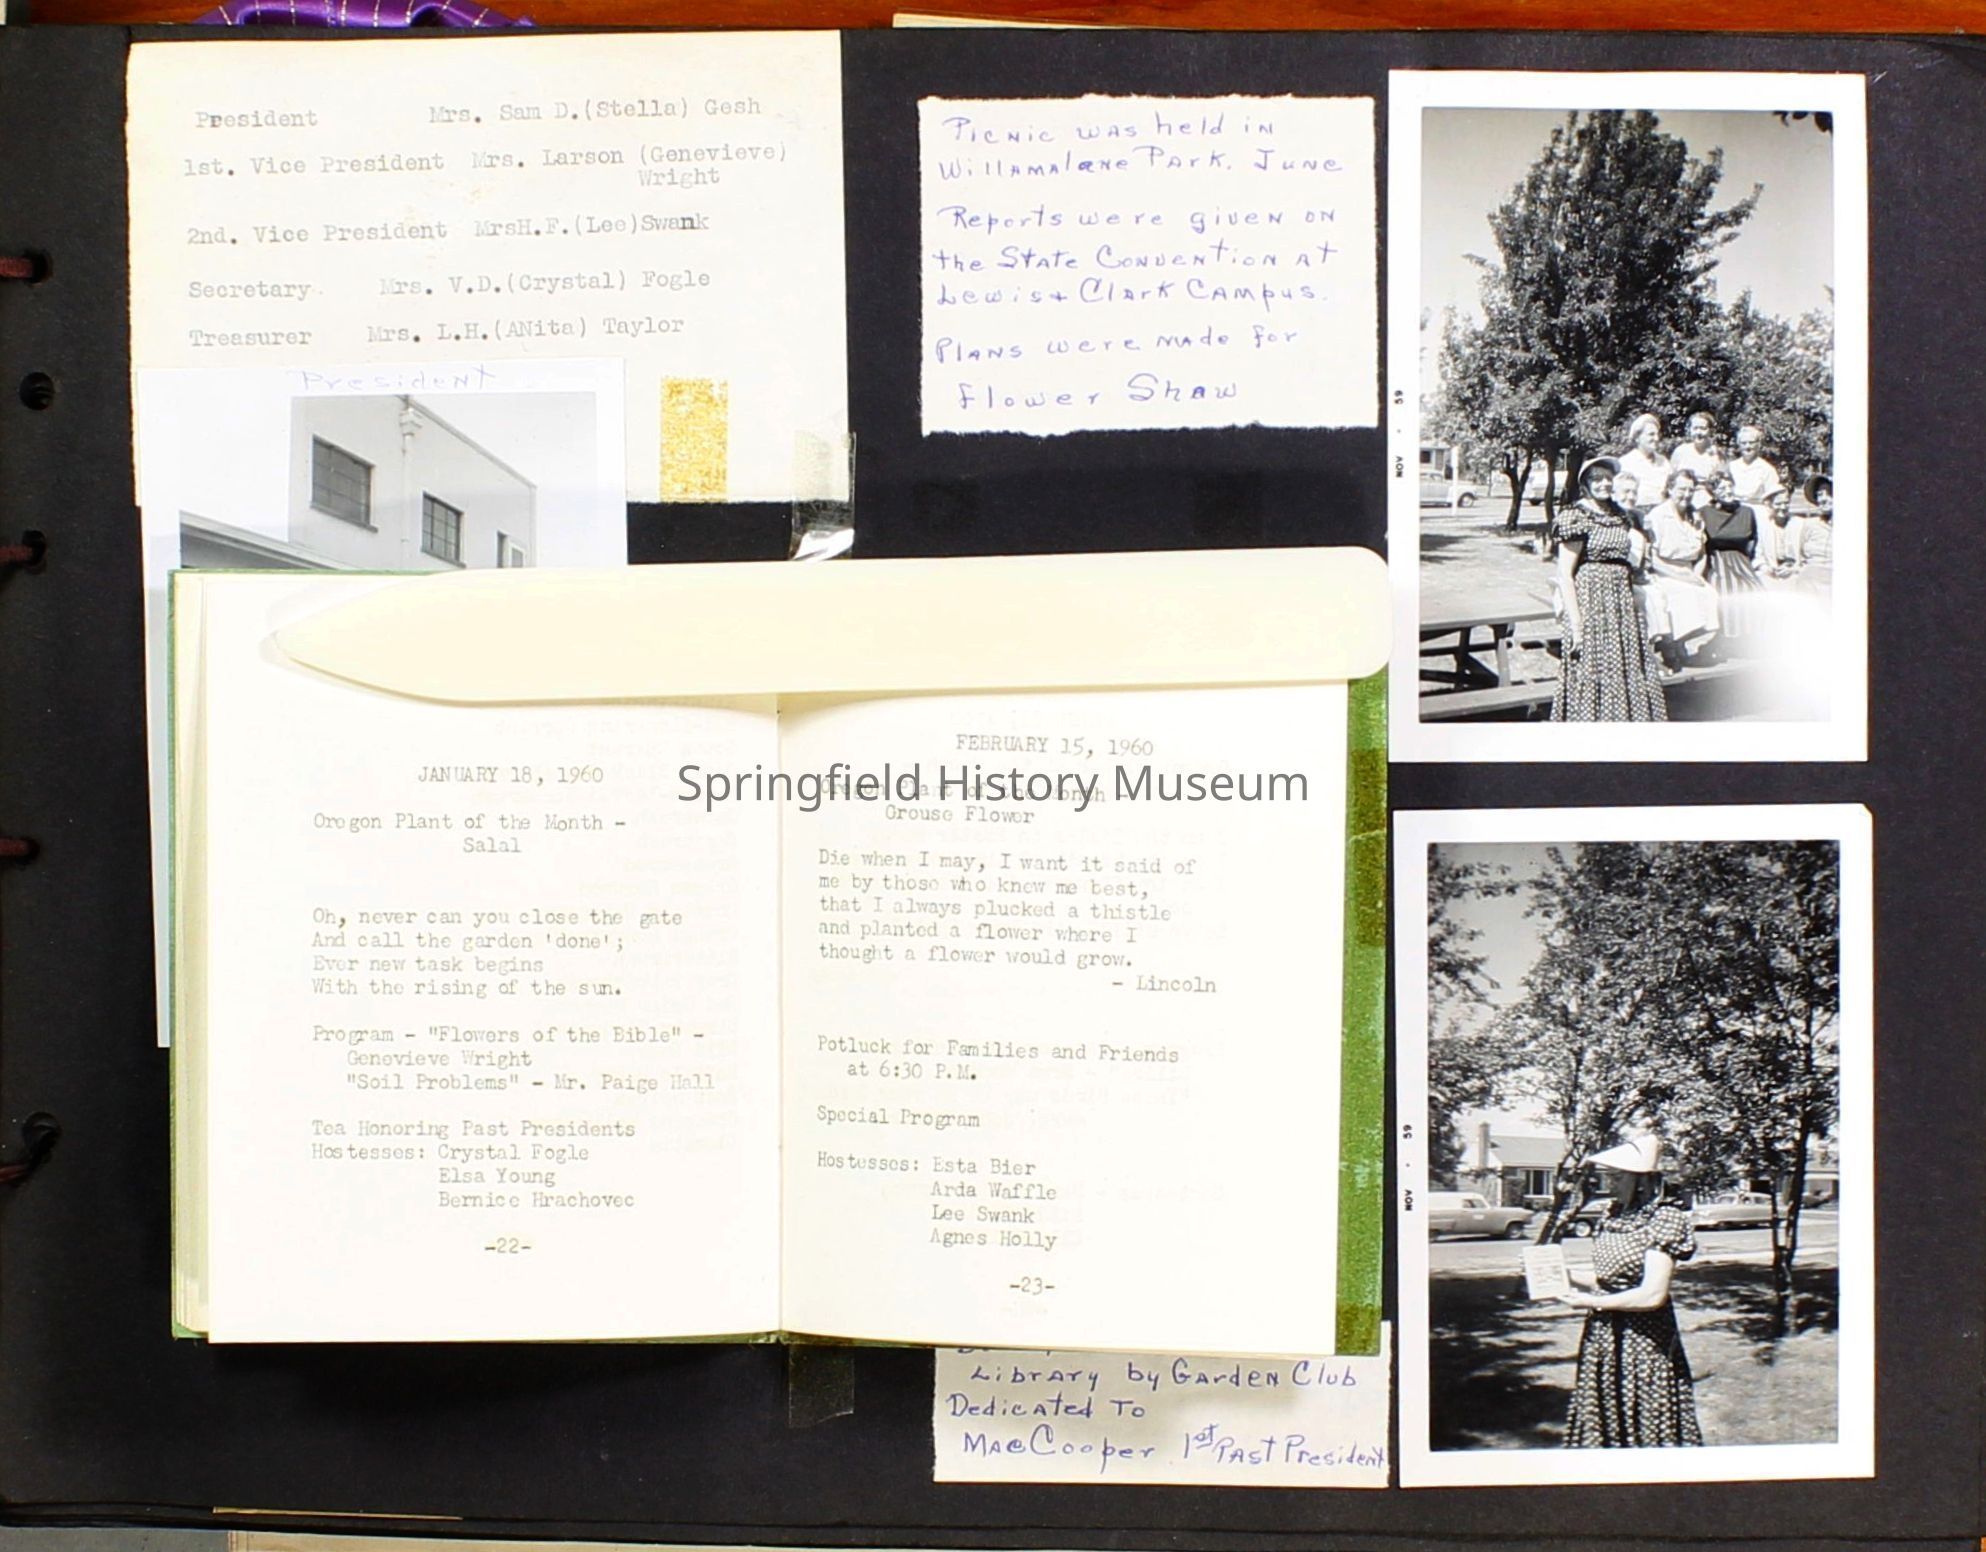 President Mrs. Sam D.(Stella) Gesh
1st. Vice President Mrs. Larson (Genevieve)
Wright
2nd. Vice President MrsH.F.(Lee)Swank
Secretary. Mrs. V.D.(Crystal) Fogle
Treasurer Mrs. L.H.(ANita) Taylor
President
Picnic was held in
Willamalane Park. June
Reports were given on
the State Convention at
Lewis & Clark Campus.
Plans were made for
Flower Shaw
NOV · 59
JANUARY 18, 1960
Oregon Plant of the Month -
Salal
Oh, never can you close the gate
And call the garden 'done';
Ever new task begins
With the rising of the sun.
Program - "Flowers of the Bible" -
Genevieve Wright
"Soil Problems" - Mr. Paige Hall
Tea Honoring Past Presidents
Hostesses: Crystal Fogle
Elsa Young
Bernice Hrachovec
-22-
FEBRUARY 15, 1960
Oregon Plant of the Month -
Grouse Flower
Die when I may, I want it said of
me by those who knew me best,
that I always plucked a thistle
and planted a flower where I
thought a flower would grow.
- Lincoln
Potluck for Families and Friends
at 6:30 P.M.
Special Program
Hostesses: Esta Bier
Arda Waffle
Lee Swank
Agnes Holly
-23-
Springfield History Museum
Library by Garden Club
Dedicated To
Mae Cooper 1st Past President
NOV · 59